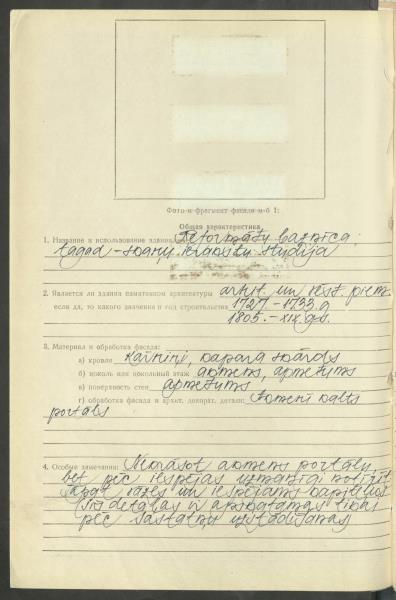 Фото и фрагмент фасада м-б 1:
Общая характеристика
1. Название и использование здания Reformātu baznīca
tagad - skaņu ierakstu studija
2. Является ли здание памятником архитектуры arhit. un vēst. piem.
если да, то какого значения и год строительства 1727-1733.g
1805. - XIX gs.
3. Материал и обработка фасада:
а) кровля Kārniņi, vapara skārds
б) цоколь или цокольный этаж akmens, apmetums
в) поверхность стен apmetums
г) обработка фасада и архит. декорат. детали: Akmeni kalts
portāls
4. Особые замечания: Nekrāsot akmens portālu,
bet pēc iespējas uzmanīgi notīrīt
un iespējams
Šīs detaļas ir apskatāmas tikai
pēc sastatņu uzstādīšanas